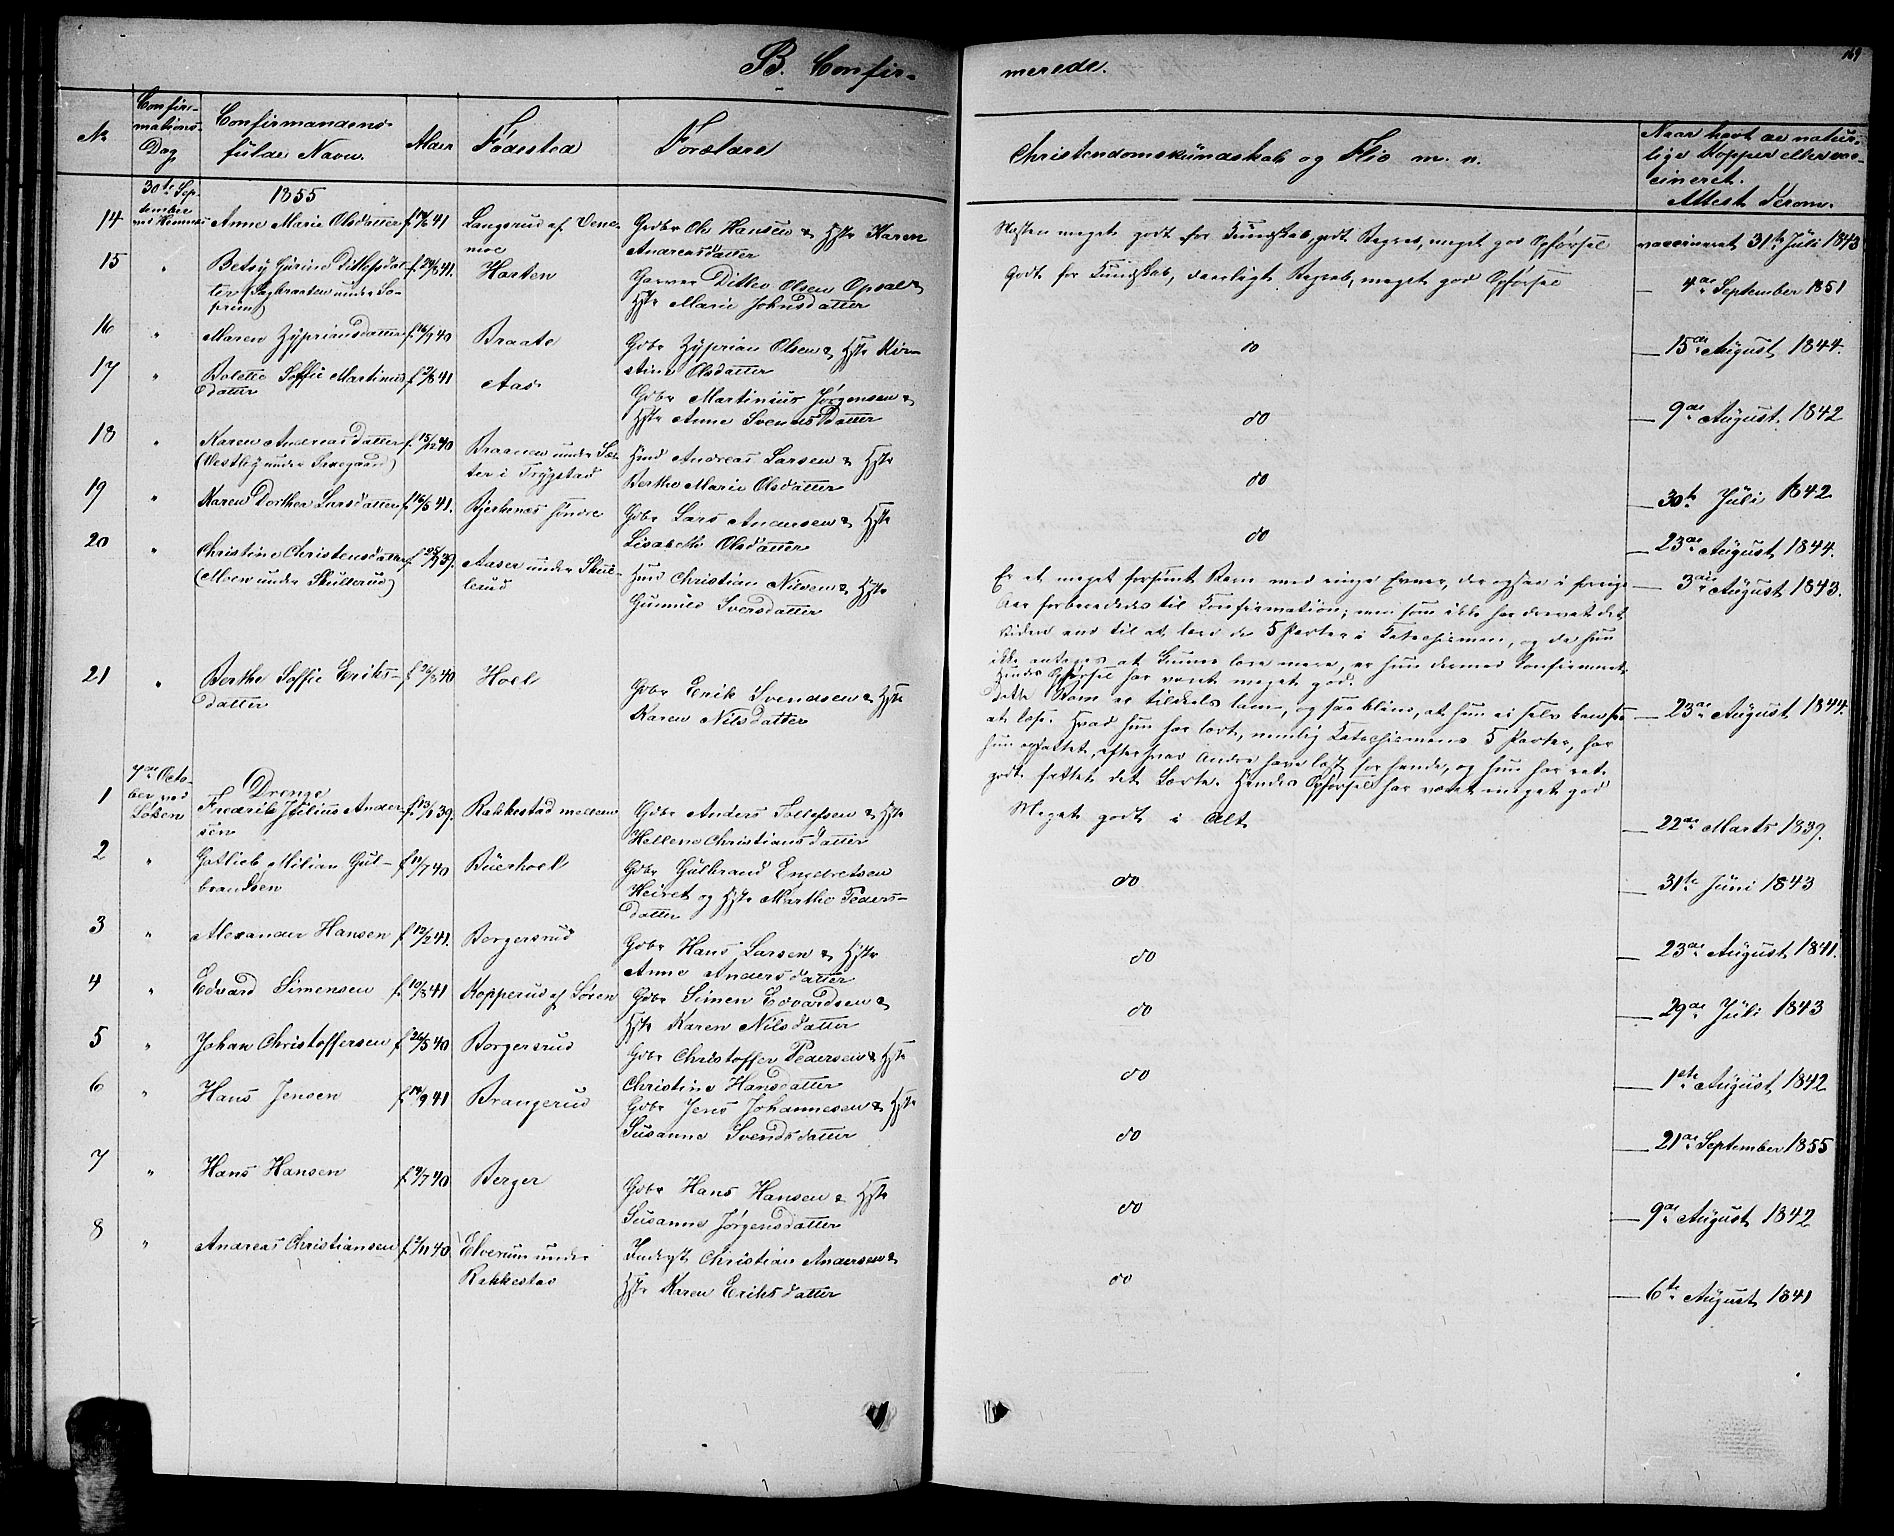 B. Confir-
merede.
169
No
Confir-
mations-
Dag
Confirmandens
fulde Navn.
Alder
Fødested
Forældre
Christendomskundskab og Flid m. v.
Naar havt de natur-
lige Kopper eller vac-
cineret.
Attest derom.
30te Sep-
tember
ved Hemnæs
1855
14 Anne Marie Olsdatter f. 41 Langsrud af Gdbr Ole Hansen & Hstr Karen
Andreasdatter
Næsten meget godt for Kundskab, godt Begreb, meget god Opførsel
vaccineret 31te Juli 1843
15 " Betsy Gurine Ditlefsdat-
ter
f. 41. Harten Garver Ditlev Olsen Opsal &
Hstr Marie Johnsdatter
Godt for Kundskab, daarligt Begreb, meget god Opførsel
— 4de September 1851
16 " Maren Zypriansdatter f. 16/9 40 Braate Gdbr Zyprian Olsen & Hstr Kir-
stine Olsdatter
do
— 15de August 1844.
17 " Bolette Soffie Martinus-
datter
f. 41 Aas Gdbr Martinius Jørgensen &
Hstr Anne Svendsdatter
do
— 9de August 1842
18 " Karen Andreasdatter
(Vestby under
f. 15/12 40 Braanen under Sæ-
ter i Trygstad
Hmd Andreas Larsen & Hstr
Berthe Marie Olsdatter
do
— 30te Juli 1842
19 " Karen Dorthea Larsdatter f. 16/5 41. Bjerkenæs søndre Gdbr Lars Andersen & Hstr
Lisabeth Olsdatter
do
— 23de August 1844.
20 " Christine Christensdatter
(Moen under Skullerud)
f. 39. Aaser under Skul-
lerud
Hmd Christian Nilsen & Hstr
Gunnild Iversdatter
— 3die August 1843.
Er et meget forsømt Barn med ringe Evner, der ogsaa i forrige
Aar forberededes til Confirmation; men som ikke har drevet det
videre end til at lære de 5 Parter i Katechismen, og da hun
ikke antages at kunne lære mere, er hun dermed Confirmeret.
Hendes Opførsel har været meget god.
21 " Berthe Soffie Eriks-
datter
f. 26/8 40 Hoel Gdbr Erik Svendsen & Hstr
Karen Nilsdatter
— 23de August 1844.
Dette Barn er tildels lam, og saa blind, at hun ei selv kan see
at læse. Hvad hun har lært, nemlig Katechismens 5 Parter, har
hun opfattet, efter hvad Andre have læst for hende, og hun har ret
godt fattet det Lærte. Hendes Opførsel har været meget god
7de Octo-
ber ved
Løken
Drenge
1 Fredrik Julius Ander-
sen
f. 39. Rakkestad mellem Gdbr Anders Tollefsen & Hstr
Hellene Christiansdatter
Meget godt i Alt
— 22de Marts 1839.
2 " Gotlieb Milian Gul-
brandsen
f. 11/7 40 Buerhoel Gdbr Gulbrand Engebretsen
Heiret og Hstr Marthe Peders-
datter
do
— 31te Juni 1843
3 " Alexander Hansen f. 12/2 41. Borgersrud Gdbr Hans Larsen & Hstr
Anne Andersdatter
do
— 23de August 1841.
4 " Edvard Simensen f. 10/8 41 Kopperud af Søren Gdbr Simen Edvardsen &
Hstr Karen Nilsdatter
do
— 29de Juli 1843
5 " Johan Christoffersen f. 26/5 40 Borgersrud Gdbr Christoffer Pedersen & Hstr
Christine Hansdatter
do
— 1ste August 1842
6 " Hans Jensen f. 14/9 41 Brangerud Gdbr Jens Johannesen & Hstr
Susanne Svendsdatter
do
— 21de September 1855
7 " Hans Hansen f. 9/7 40 Berger Gdbr Hans Hansen & Hstr
Susanne Jørgensdatter
do
— 9de August 1842
8 " Andreas Christiansen f. 40 Elverum under
Rakkestad
Inderst Christian Andersen &
Hstr Karen Eriksdatter
do
— 6te August 1841